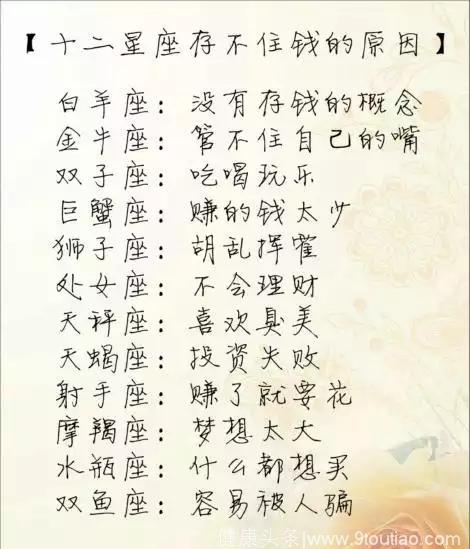 【十二星座存不住钱的原因】
白羊座：没有存钱的概念
金牛座：管不住自己的嘴
双子座：吃喝玩乐
巨蟹座：赚的钱太少
狮子座：胡乱挥霍
处女座：不会理财
天秤座：喜欢臭美
天蝎座：投资失败
射手座：赚了就要花
摩羯座：梦想太大
水瓶座：什么都想买
双鱼座：容易被人骗
健康头条/www.9toutiao.com